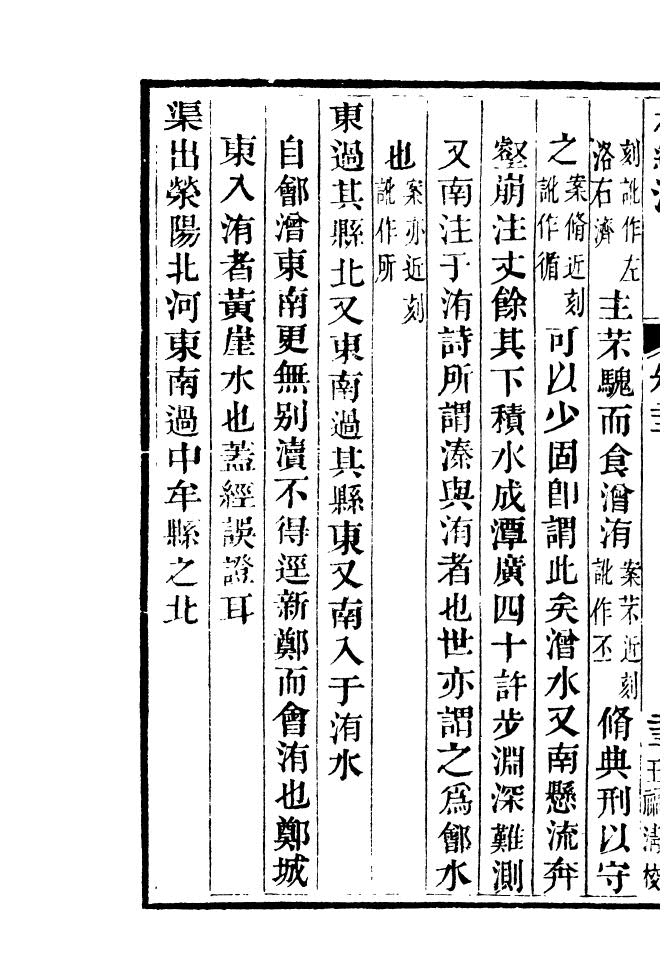 刻訛作左洛右濟主芣騩而食溱洧案芣近刻訛作丕脩典刑以守
之案脩近刻訛作循可以少固卽謂此矣潧水又南懸流奔
壑崩注丈餘其下積水成潭廣四十許步淵深難測
又南注于洧詩所謂溱與洧者也世亦謂之爲鄶水
也案亦近刻訛作所
東過其縣北又東南過其縣東又南入于洧水
自鄶潧東南更無别瀆不得逕新鄭而會洧也鄭城
東入洧者黃崖水也蓋經誤證耳
渠出滎陽北河東南過中牟縣之北